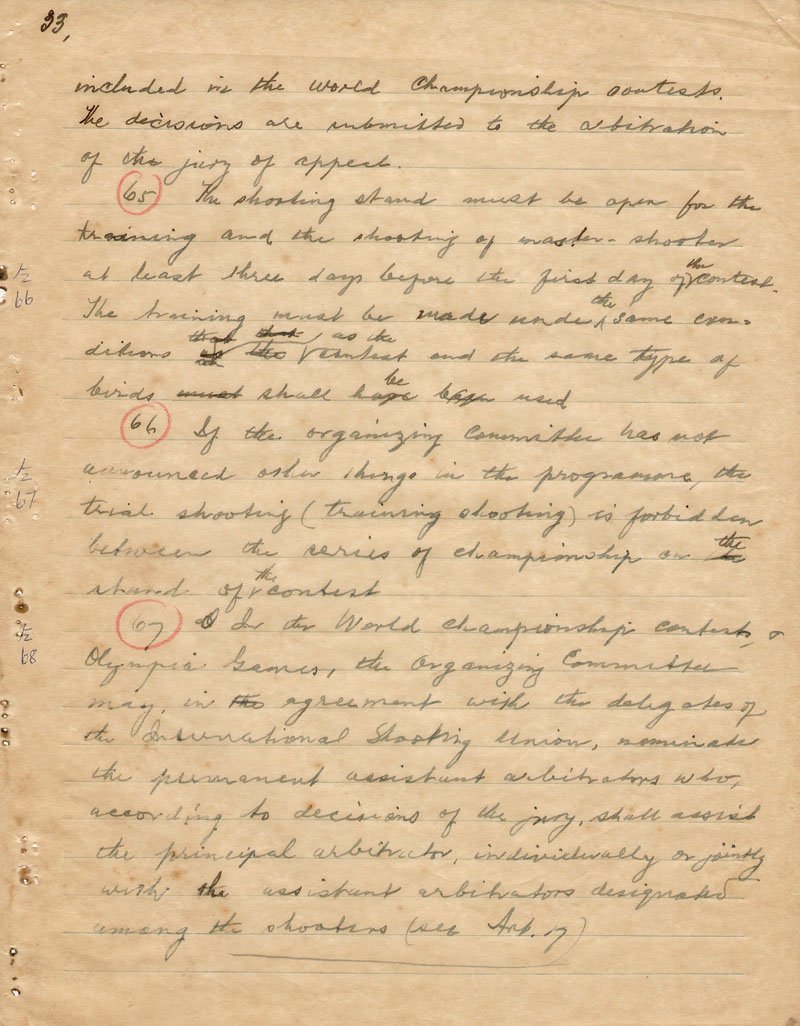 33,
included in the World Championship contests.
The decisions are submitted to the arbitration
of the jury of appeal.
65 The shooting stand must be open for the
training and the shooting of master-shooter
at least three days before the first day of the contest.
1/2 66
The training must be made under the same con-
ditions as the contest and the same type of
birds must shall be used
66 If the organizing Committee has not
announced other things in the programme, the
1/2 67
trial shooting (training shooting) is forbidden
between the series of championship on the
stand of the contest
67 In the World Championship contests, or
1/2 68
Olympic Games, the Organizing Committee
may, in the agreement with the delegates of
the International Shooting Union, nominate
the permanent assistant arbitrators who,
according to decisions of the jury, shall assist
the principal arbitrator, individually or jointly
with the assistant arbitrators designated
among the shooters (see Art. 17)